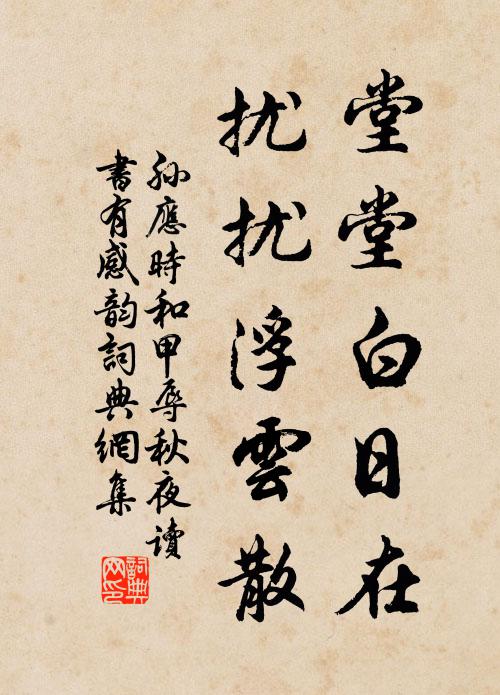 堂堂白日在
扰扰浮雲散
孙應時和甲辱秋夜读
書有感韵詞典網集
詞典网印